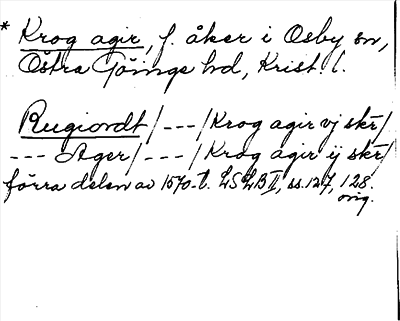 * Krog agir, f. åker i Osby sn,
Östra Göinge hd, Krist. l.
Rugiordt/---/Krog agir vj skr/
--- Ager/---/Krog agir ij skr/
förra delen av 1570-t. LSLB II, ss. 127, 128.
orig.